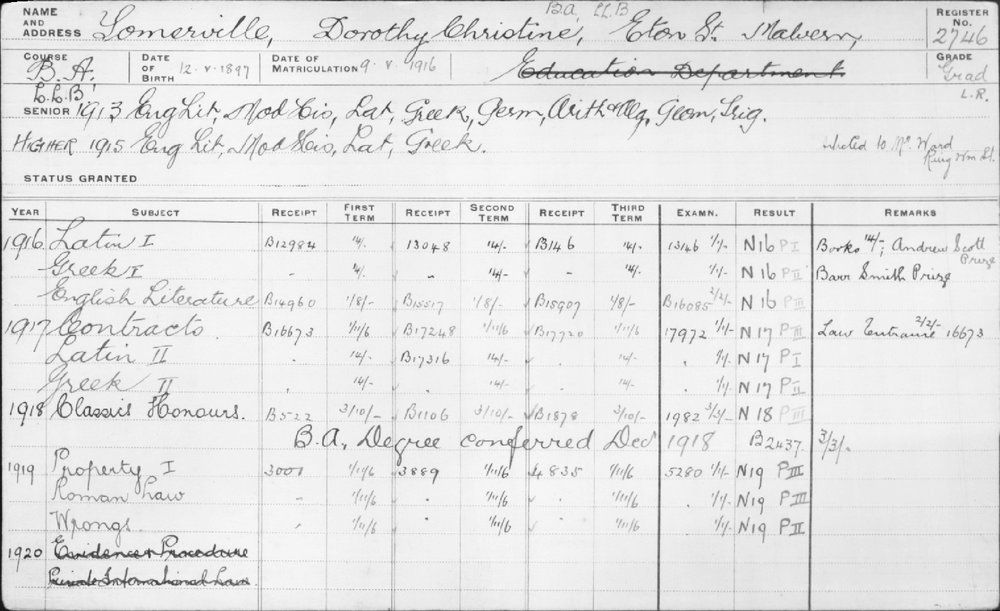 B.A. LL.B
NAME AND ADDRESS Somerville, Dorothy Christine, Eton St. Malvern, REGISTER No. 2746
COURSE B.A. LL.B DATE OF BIRTH 12.V.1897 DATE OF MATRICULATION 9.V.1916 Education Department GRADE Grad
L.R.
SENIOR 1913 Eng Lit, Mod His, Lat, Greek, Germ, Arith & Alg, Geom, Trig.
HIGHER 1915 Eng Lit, Mod His, Lat, Greek. to Mr. Ward
King Wm St.
STATUS GRANTED
YEAR SUBJECT RECEIPT FIRST TERM RECEIPT SECOND TERM RECEIPT THIRD TERM EXAMN. RESULT REMARKS
1916 Latin I B12984 14/- 13048 14/- B146 14/- 13146 1/1/- N16 PI Books 14/-; Andrew Scott Prize
Greek I - 14/- - 14/- - 14/- 1/1/- N16 PII Barr Smith Prize
English Literature B14960 1/8/- B15517 1/8/- B15907 1/8/- B16085 2/2/- N16 PII
1917 Contracts B16673 1/11/6 B17248 1/11/6 B17720 1/11/6 17972 1/1/- N17 PIII Law Entrance 2/2/- 16673
Latin II . 14/- B17316 14/- . 14/- . 1/1/- N17 PI
Greek II . 14/- . 14/- . 14/- . 1/1/- N17 PII
1918 Classics Honours. B522 3/10/- B1106 3/10/- B1878 3/10/- 1982 3/3/- N18 PIII
B.A. Degree conferred Dec 1918 B2437. 3/3/-
1919 Property I 3001 1/11/6 3889 1/11/6 4835 1/11/6 5280 1/1/- N19 PIII
Roman Law - 1/11/6 . 1/11/6 . 1/11/6 . 1/1/- N19 PIII
Wrongs. . 1/11/6 . 1/11/6 . 1/11/6 . 1/1/- N19 PII
1920 Evidence & Procedure
Private International Law